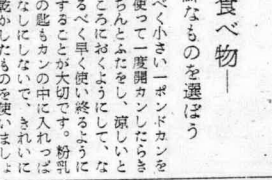 食べ物―
鮮なものを選ぼう
べく小さい一ポンドカンを
使って一度開カンしたらき
ちんとふたをし、涼しいと
ころにおくようにして、な
るべく早く使い終るように
することが大切です。粉乳
の匙もカンの中に入れっぱ
なしにしないで、きれいに
乾かしたものを使いましょ